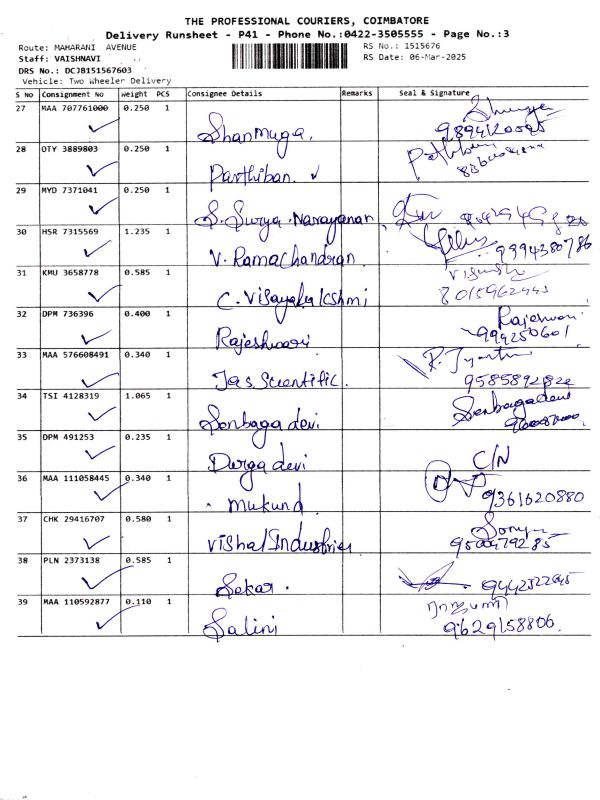 THE PROFESSIONAL COURIERS, COIMBATORE
Delivery Runsheet - P41 - Phone No.:0422-3505555 - Page No.:3
Route: MAHARANI AVENUE
RS No.: 1515676
Staff: VAISHNAVI
RS Date: 06-Mar-2025
DRS No.: DCJB151567603
Vehicle: Two Wheeler Delivery
S No Consignment No weight PCS Consignee Details Remarks Seal & Signature
27 MAA 707761000 0.250 1
Shanmuga.
28 OTY 3889803 0.250 1
Parthiban.
29 MYD 7371041 0.250 1
S. Surya Narayanan
30 HSR 7315569 1.235 1
V. Ramachandran. 9994380786
31 KMU 3658778 0.585 1
C. Vijayalakshmi
32 DPM 736396 0.400 1
Rajeshwari Rajeshwari
33 MAA 576608491 0.340 1
Jas Scientific.
34 TSI 4128319 1.065 1
Senbaga devi Senbagadevi
35 DPM 491253 0.235 1
Durga devi C/N
36 MAA 111058445 0.340 1
Mukund 9361620880
37 CHK 29416707 0.580 1
Vishal Industries
38 PLN 2373138 0.585 1
Sekar.
39 MAA 110592877 0.110 1
Salini 9629158806.